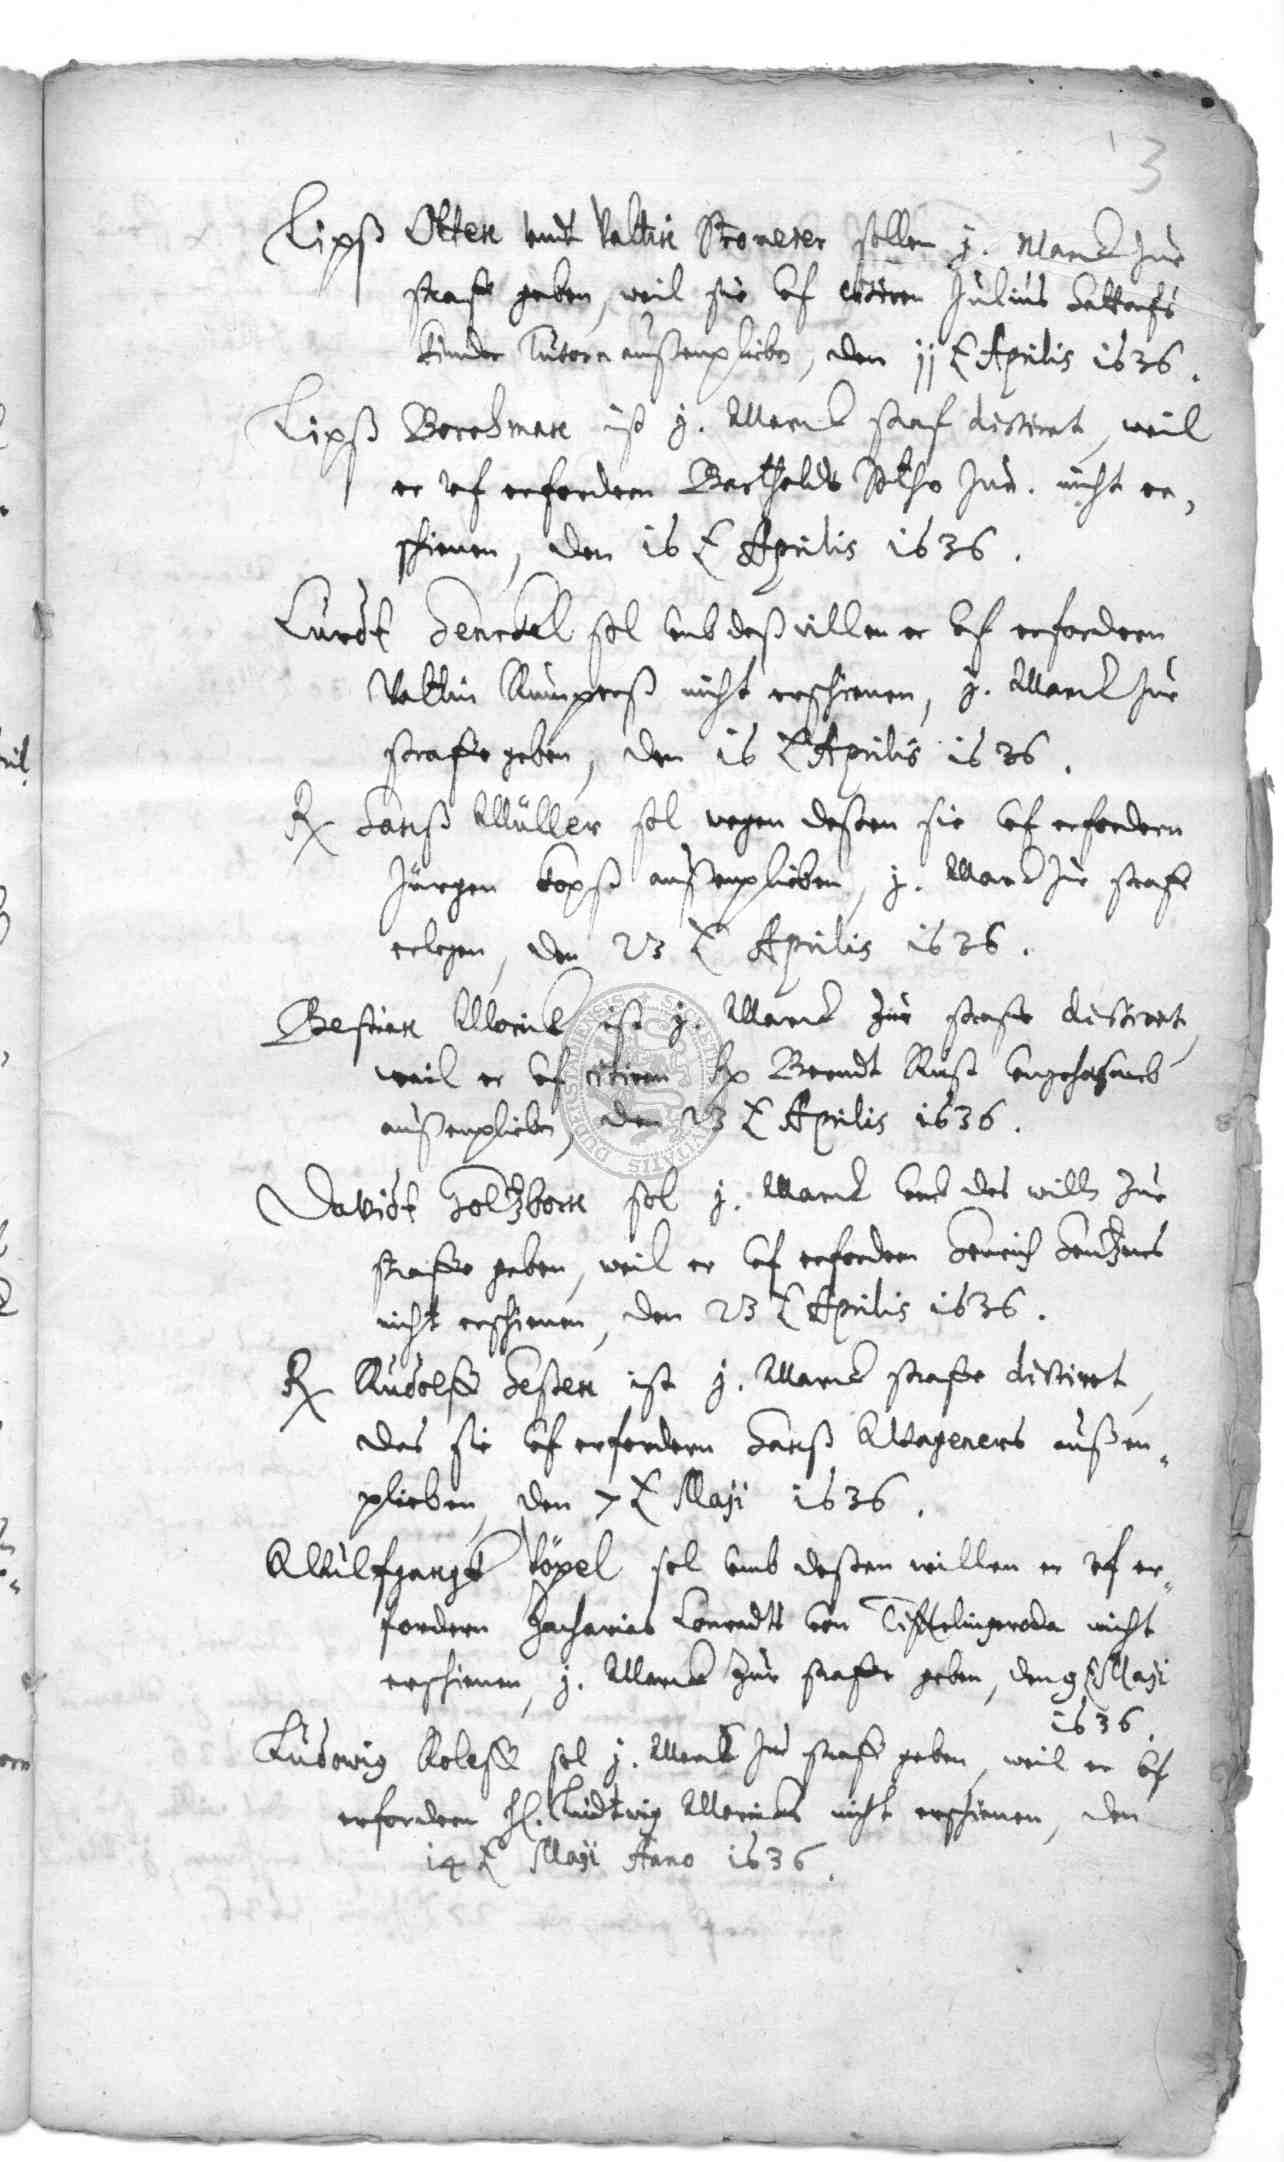 3
Lipß Otten undt Valtin Stromeier sollen j. Marck zur
straff geben, weil sie uf citiren Julius Hattorfs
kinder Tutorn außenplieben, den 11 t Aprilis 1636.
Lipß Borchman ist j. Marck straf dictirt, weil
er uf erfordern Bartholdt Otho Jun. nicht er,
schienen, den 16 t Aprilis 1636.
Curdt Henckel sol umb deß willen er uf erfordern
Valtin Rumperß nicht erschienen, j. Marck zur
straffe geben, den 16 t Aprilis 1636.
Rx Hanß Müller sol wegen deßen sie uf erfordern
Jürgen Kopß außenplieben, j. Marck zur straff
erlegen, den 23 t Aprilis 1636.
Bestian ist j. Marck zur straffe dictiret,
weil er uf citiren Berndt Rust ungehorsamb
außenplieben, den 23 t Aprilis 1636.
Davidt Holtzborn sol j. Marck umb des willn zur
straffe geben, weil er uf erfordern Henrich
nicht erschienen, den 23 t Aprilis 1636.
Rx Rudolff Heßen ist j. Marck straffe dictiret,
das sie uf erfordern Hanß Wageners außen-
plieben, den 7 t Maji 1636.
Wulfgangk Töpel sol umb deßen willen er uf er-
fordern Zacharias Conradts von Tifftelingeroda nicht
erschienen, j. Marck zur straffe geben, den 9 t Maji
1636.
Ludowig Roleff sol j. Marck zur straff geben, weil er uf
erfordern H. Ludtwig nicht erschienen, den
14 t Maji Anno 1636.